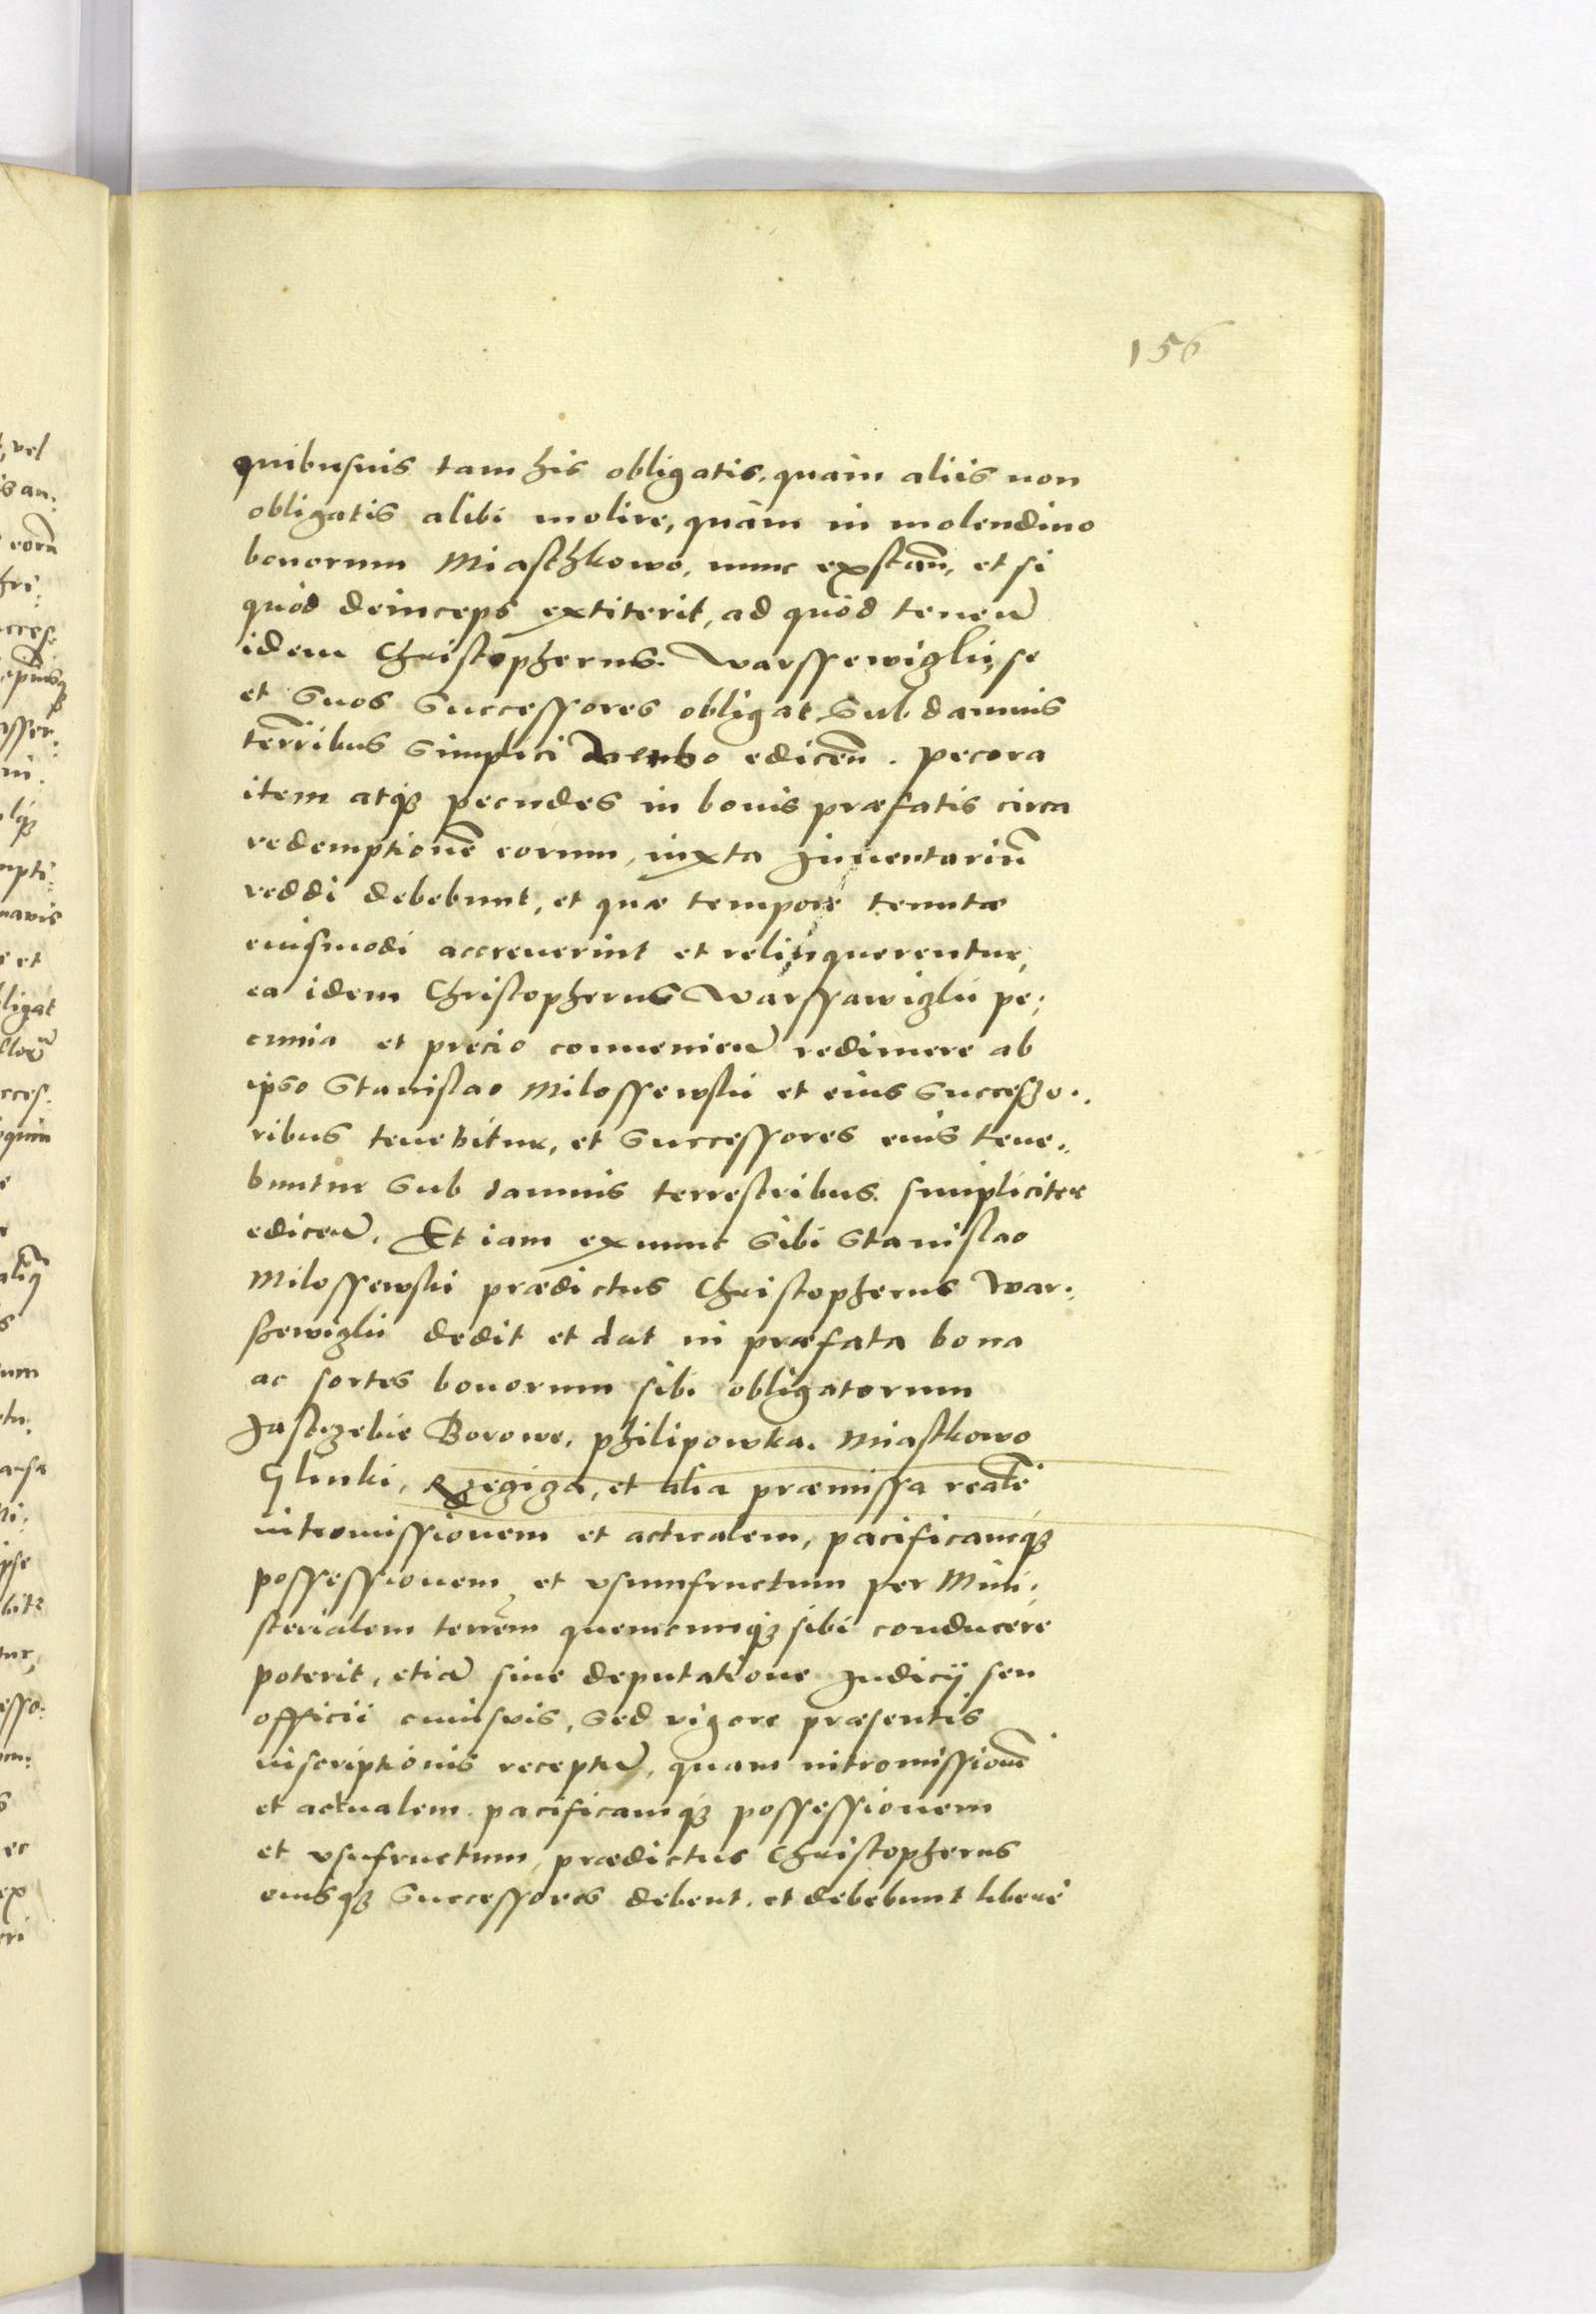 156
quibusuis tam his obligatis, quàm aliis non
obligatis alibi molire, quàm in molendino
bonorum Miasthkowo, nunc exstañ, et si
quod deinceps extiterit, ad quod teneũ
idem Christopherus Warssewiczkii, se
et suos successores obligat sub damnis
terr̃ibus simplici verbo ediceñ. pecora
item atq3 pecudes in bonis præfatis circa
redemptionẽ eorum, iuxta Inuentariũ
reddi debebunt, et quæ tempore tenutæ
eiusmodi accreuerint et relinquerentur,
ea idem Christopherus Warssawiczkii pe:
cunia et precio conuenieñ redimere ab
ipso Stanislao Milossewskii et eius successo:
ribus tenebitur, et successores eius tene:
buntur sub damnis terrestribus simpliciter
ediceñ. Et iam exnunc sibi Stanislao
Milossewskii prædictus Christopherus War:
ssewiczkii dedit et dat in præfata bona
ac sortes bonorum sibi obligatorum
Jastrzebie Borowe, philipowka, Miastkowo
Glinki, et alia præmissa realẽ
intromissionem et actualem, pacificamq3
possessionem et vsumfructum per Mini:
sterialem terrẽm quemcunq3 sibi conducere
poterit, etiã sine deputatione Judicij seu
officii cuiusuis, sed vigore præsentis
inscriptionis receptũ, quam intromissionẽ
et actualem pacificamq3 possessionem
et vsufructum, prædictus Christopherus
eiusq3 successores debent et debebunt liberè